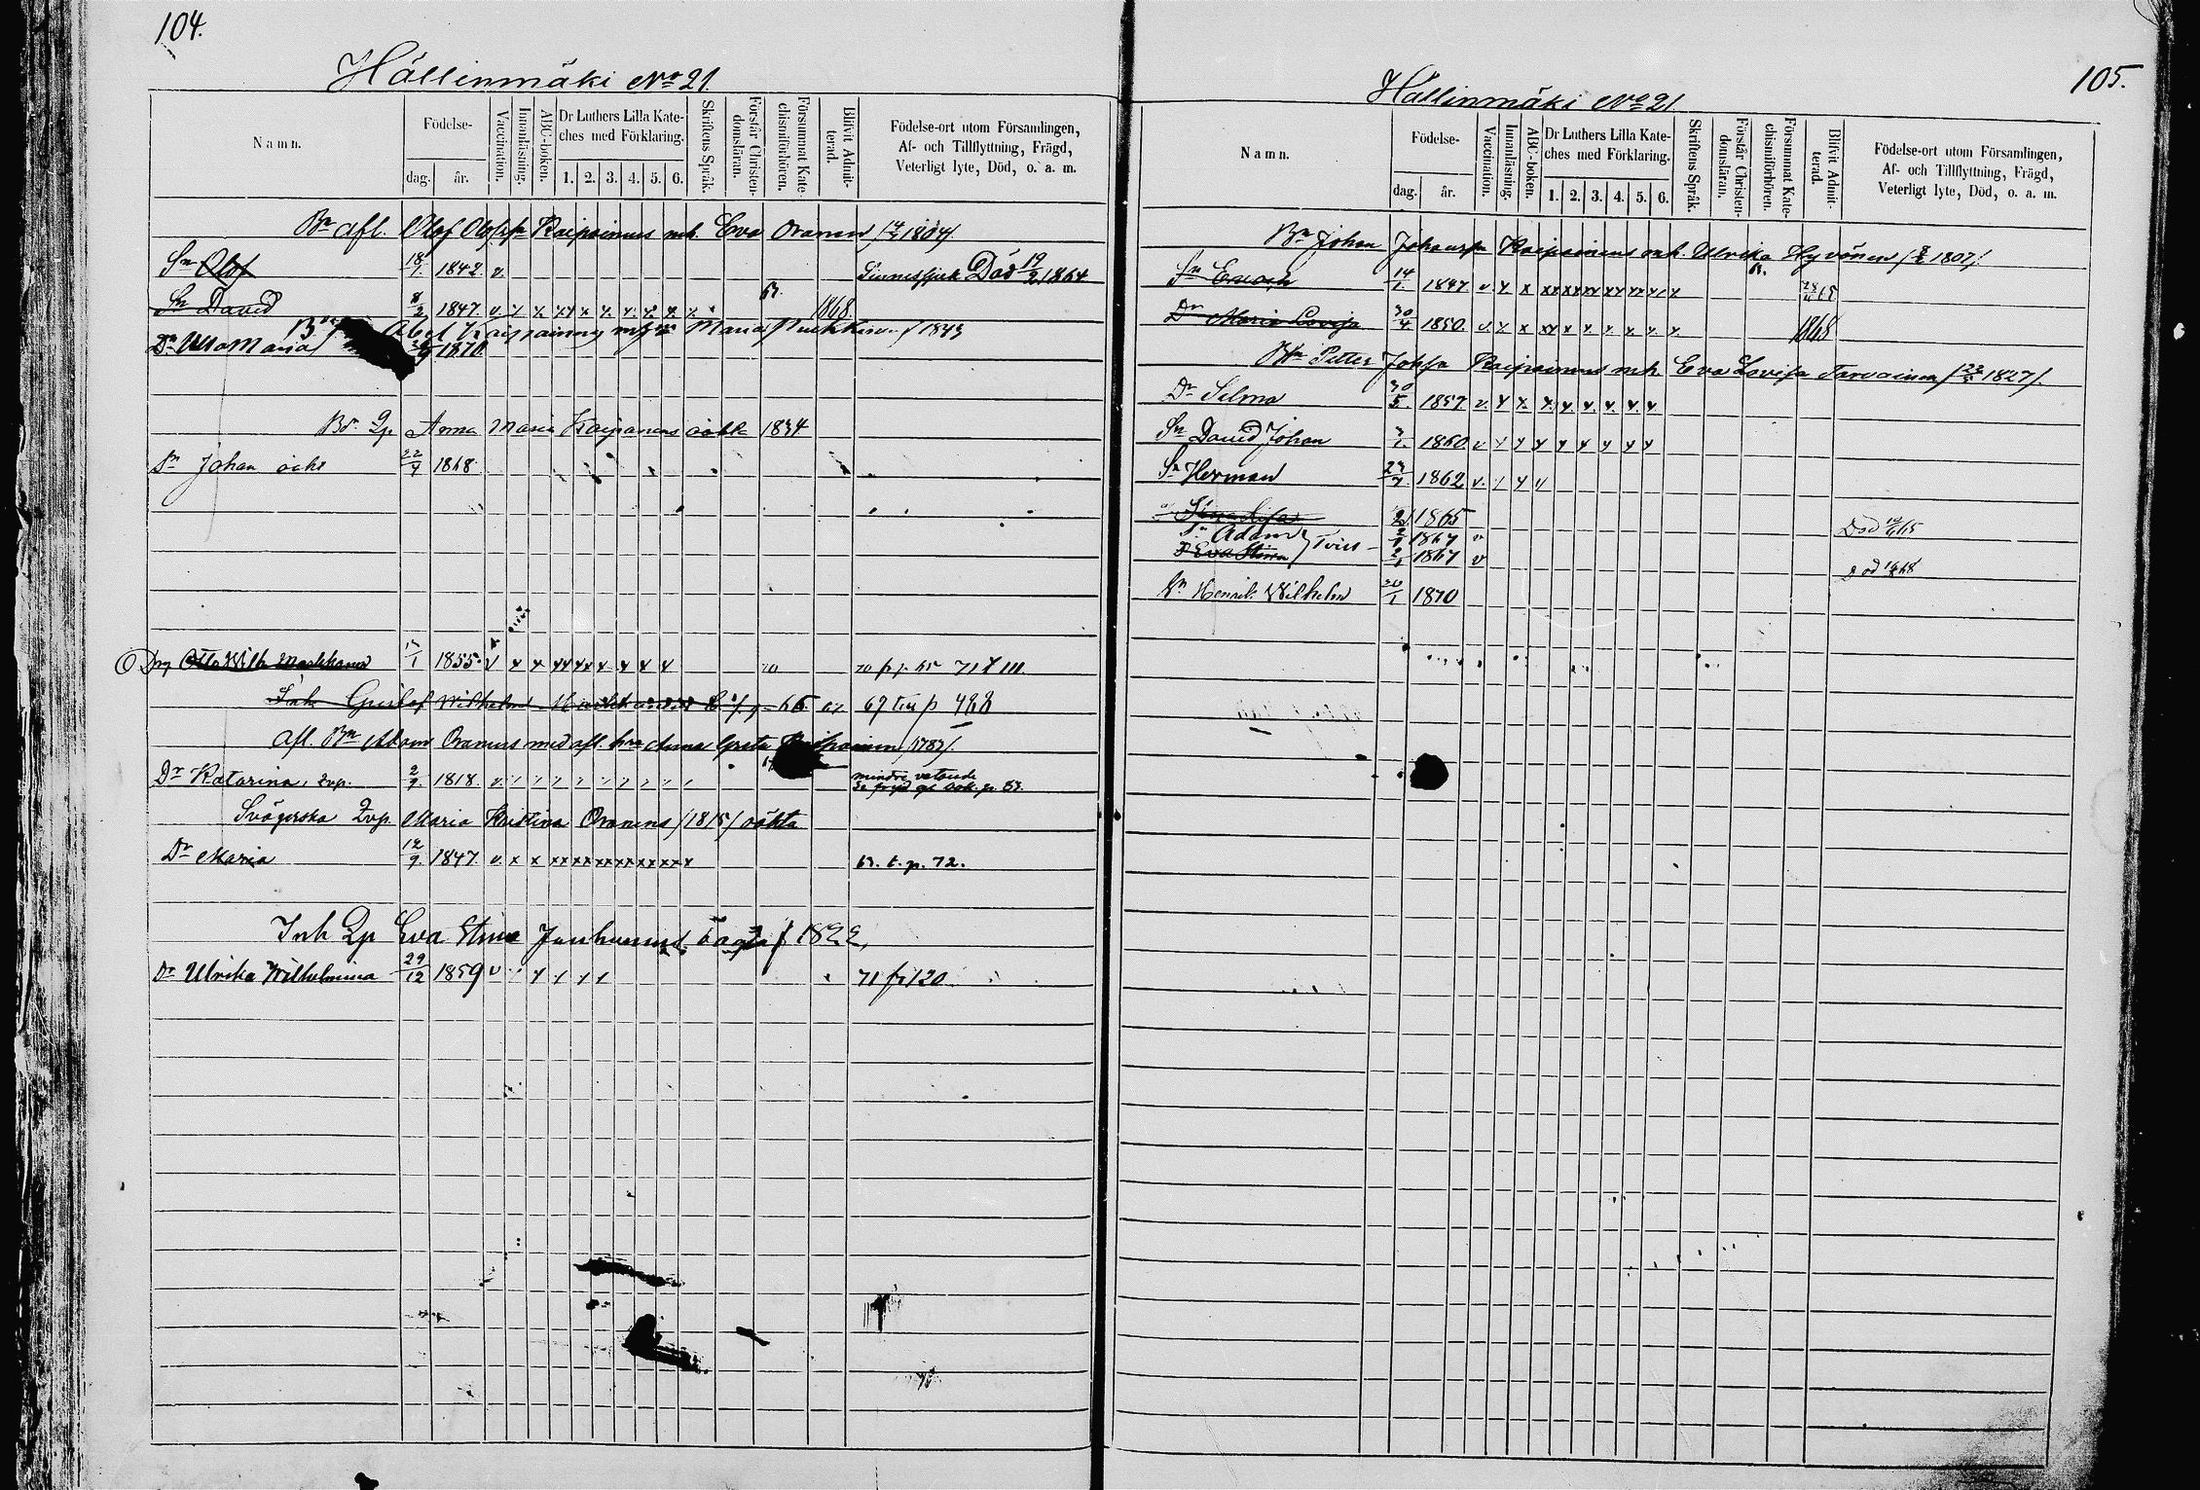 104.
Hällinmäki No 21.
Namn.
Födelse-
dag.
år.
Vaccination.
Innanläsning.
ABC-boken.
Dr Luthers Lilla Kate-
ches med Förklaring.
1. 2. 3. 4. 5. 6.
Skriftens Språk.
Förstår Christen-
domsläran.
Försummat Kate-
chismiförhören.
Blifvit Admit-
terad.
Födelse-ort utom Församlingen,
Af- och Tillflyttning, Frägd,
Veterligt lyte, Död, o. a. m.
Bn afl. Olof Olofsn Kaipainens enk. Eva Oranen 1804
Sn Olof 18/7 1842 v. Sinnessjuk Död 19/2 1864
Sn David 8/2 1847. v. x x x x x x x x x x 63. 1868
Bn Abel Kaipainens Maria 1843
Dr Ulla Maria 1870
Br. Qp Anna Maria Kaipainens oäkta 1834
Sn Johan 22/7 1868
Drg Otto Wilh 17/1 1855 v x x x x x x x x x 70
Gustaf Wilhelm 66 67 69 till p 488
Afl. Bn Adam Oranens med afl. hu Anna Greta /1787/.
Dr Katarina, 2/9 1818. v. mindre vetande
p. 83.
Svägerska Qvp. Maria Kristina Oranens /1815/ oäkta
Dr Maria 12/9 1847. v. x x x x x x x x x x x x 63. t. p. 72.
Inh Qp Eva Stina 1822
Dr Ulrika Wilhelmina 29/12 1859 v 71 p 120
105.
Hällinmäki No 21
Namn.
Födelse-
dag.
år.
Vaccination.
Innanläsning.
ABC-boken.
Dr Luthers Lilla Kate-
ches med Förklaring.
1. 2. 3. 4. 5. 6.
Skriftens Språk.
Förstår Christen-
domsläran.
Försummat Kate-
chismiförhören.
Blifvit Admit-
terad.
Födelse-ort utom Församlingen,
Af- och Tillflyttning, Frägd,
Veterligt lyte, Död, o. a. m.
Bn Johan Johansn Kaipainens enk. Ulrika Hyvönen 1807/.
Sn Enoch 14/1. 1847 v. x x x x x x x x x x x x 63.
Dr Maria Lovisa 30/4 1850. v. x x x x x x x x x x 1868
Bn Petter Johsn Kaipainens m.h. Eva Lovisa Tarvainen 1827/.
Dr Selma 30/5. 1857. v. x x x x x x x x
Sn David Johan 3/1. 1860 v x x x x x x x x
Sn Herman 1862 v.
1865 Död
Sn Adam 2/1 1867 v
Dr Eva Stina 2/1 1867 v Död
Sn Henrik Wilhelm 1870